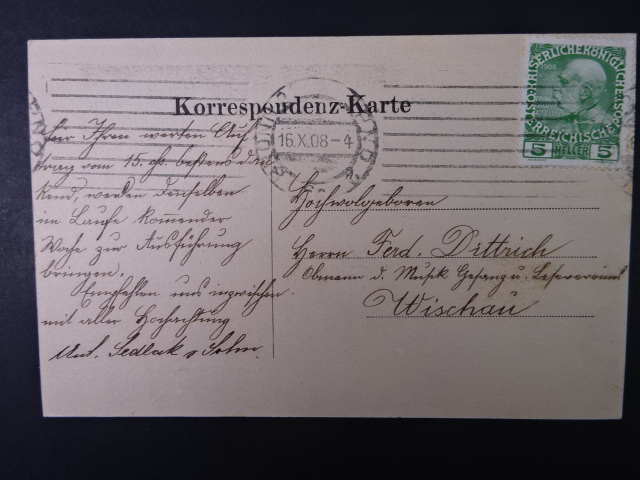 Korrespondenz-Karte
16.X.08-4
KAISERLICHE KÖNIGLICHE
ÖSTERREICHISCHE
1908
5 HELLER 5
Für Ihren werten Auf
trag vom 15. ds. bestens dan
kend, werden denselben
im Laufe kommender
Woche zur Ausführung
bringen.
Empfehlen uns inzwischen
mit aller Hochachtung
Ant. Sedlak & Sohn.
Hochwolgeboren
Herrn Ferd. Dittrich
Obmann d. Musik Gesang u. Lesevereines
Wischau